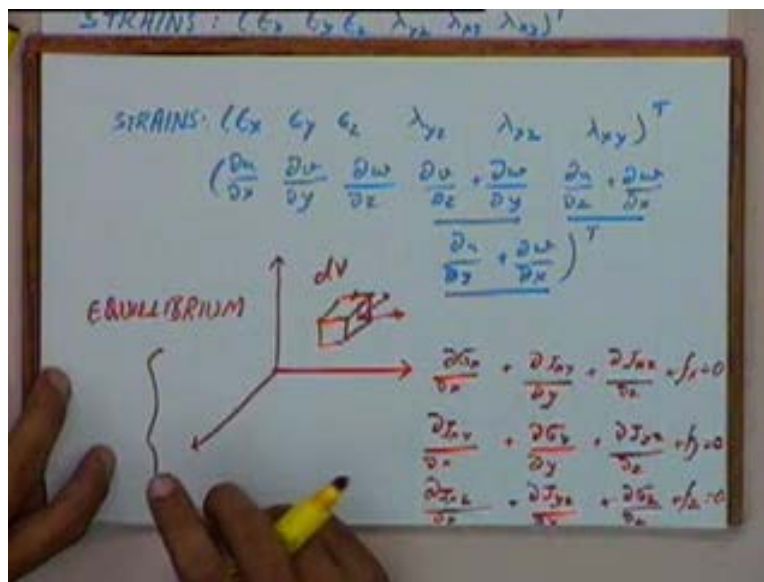 STRAINS: (ϵx ϵy ϵz λyz λxz λxy)^T
STRAINS: (ϵx ϵy ϵz λyz λxz λxy)^T
(∂u/∂x ∂v/∂y ∂w/∂z ∂v/∂z + ∂w/∂y ∂u/∂z + ∂w/∂x
∂u/∂y + ∂w/∂x)^T
dV
EQUILLIBRIUM
∂σx/∂x + ∂Jxy/∂y + ∂Jxz/∂z + fx = 0
∂Jxy/∂x + ∂σy/∂y + ∂Jyz/∂z + fy = 0
∂Jxz/∂x + ∂Jyz/∂y + ∂σz/∂z + fz = 0